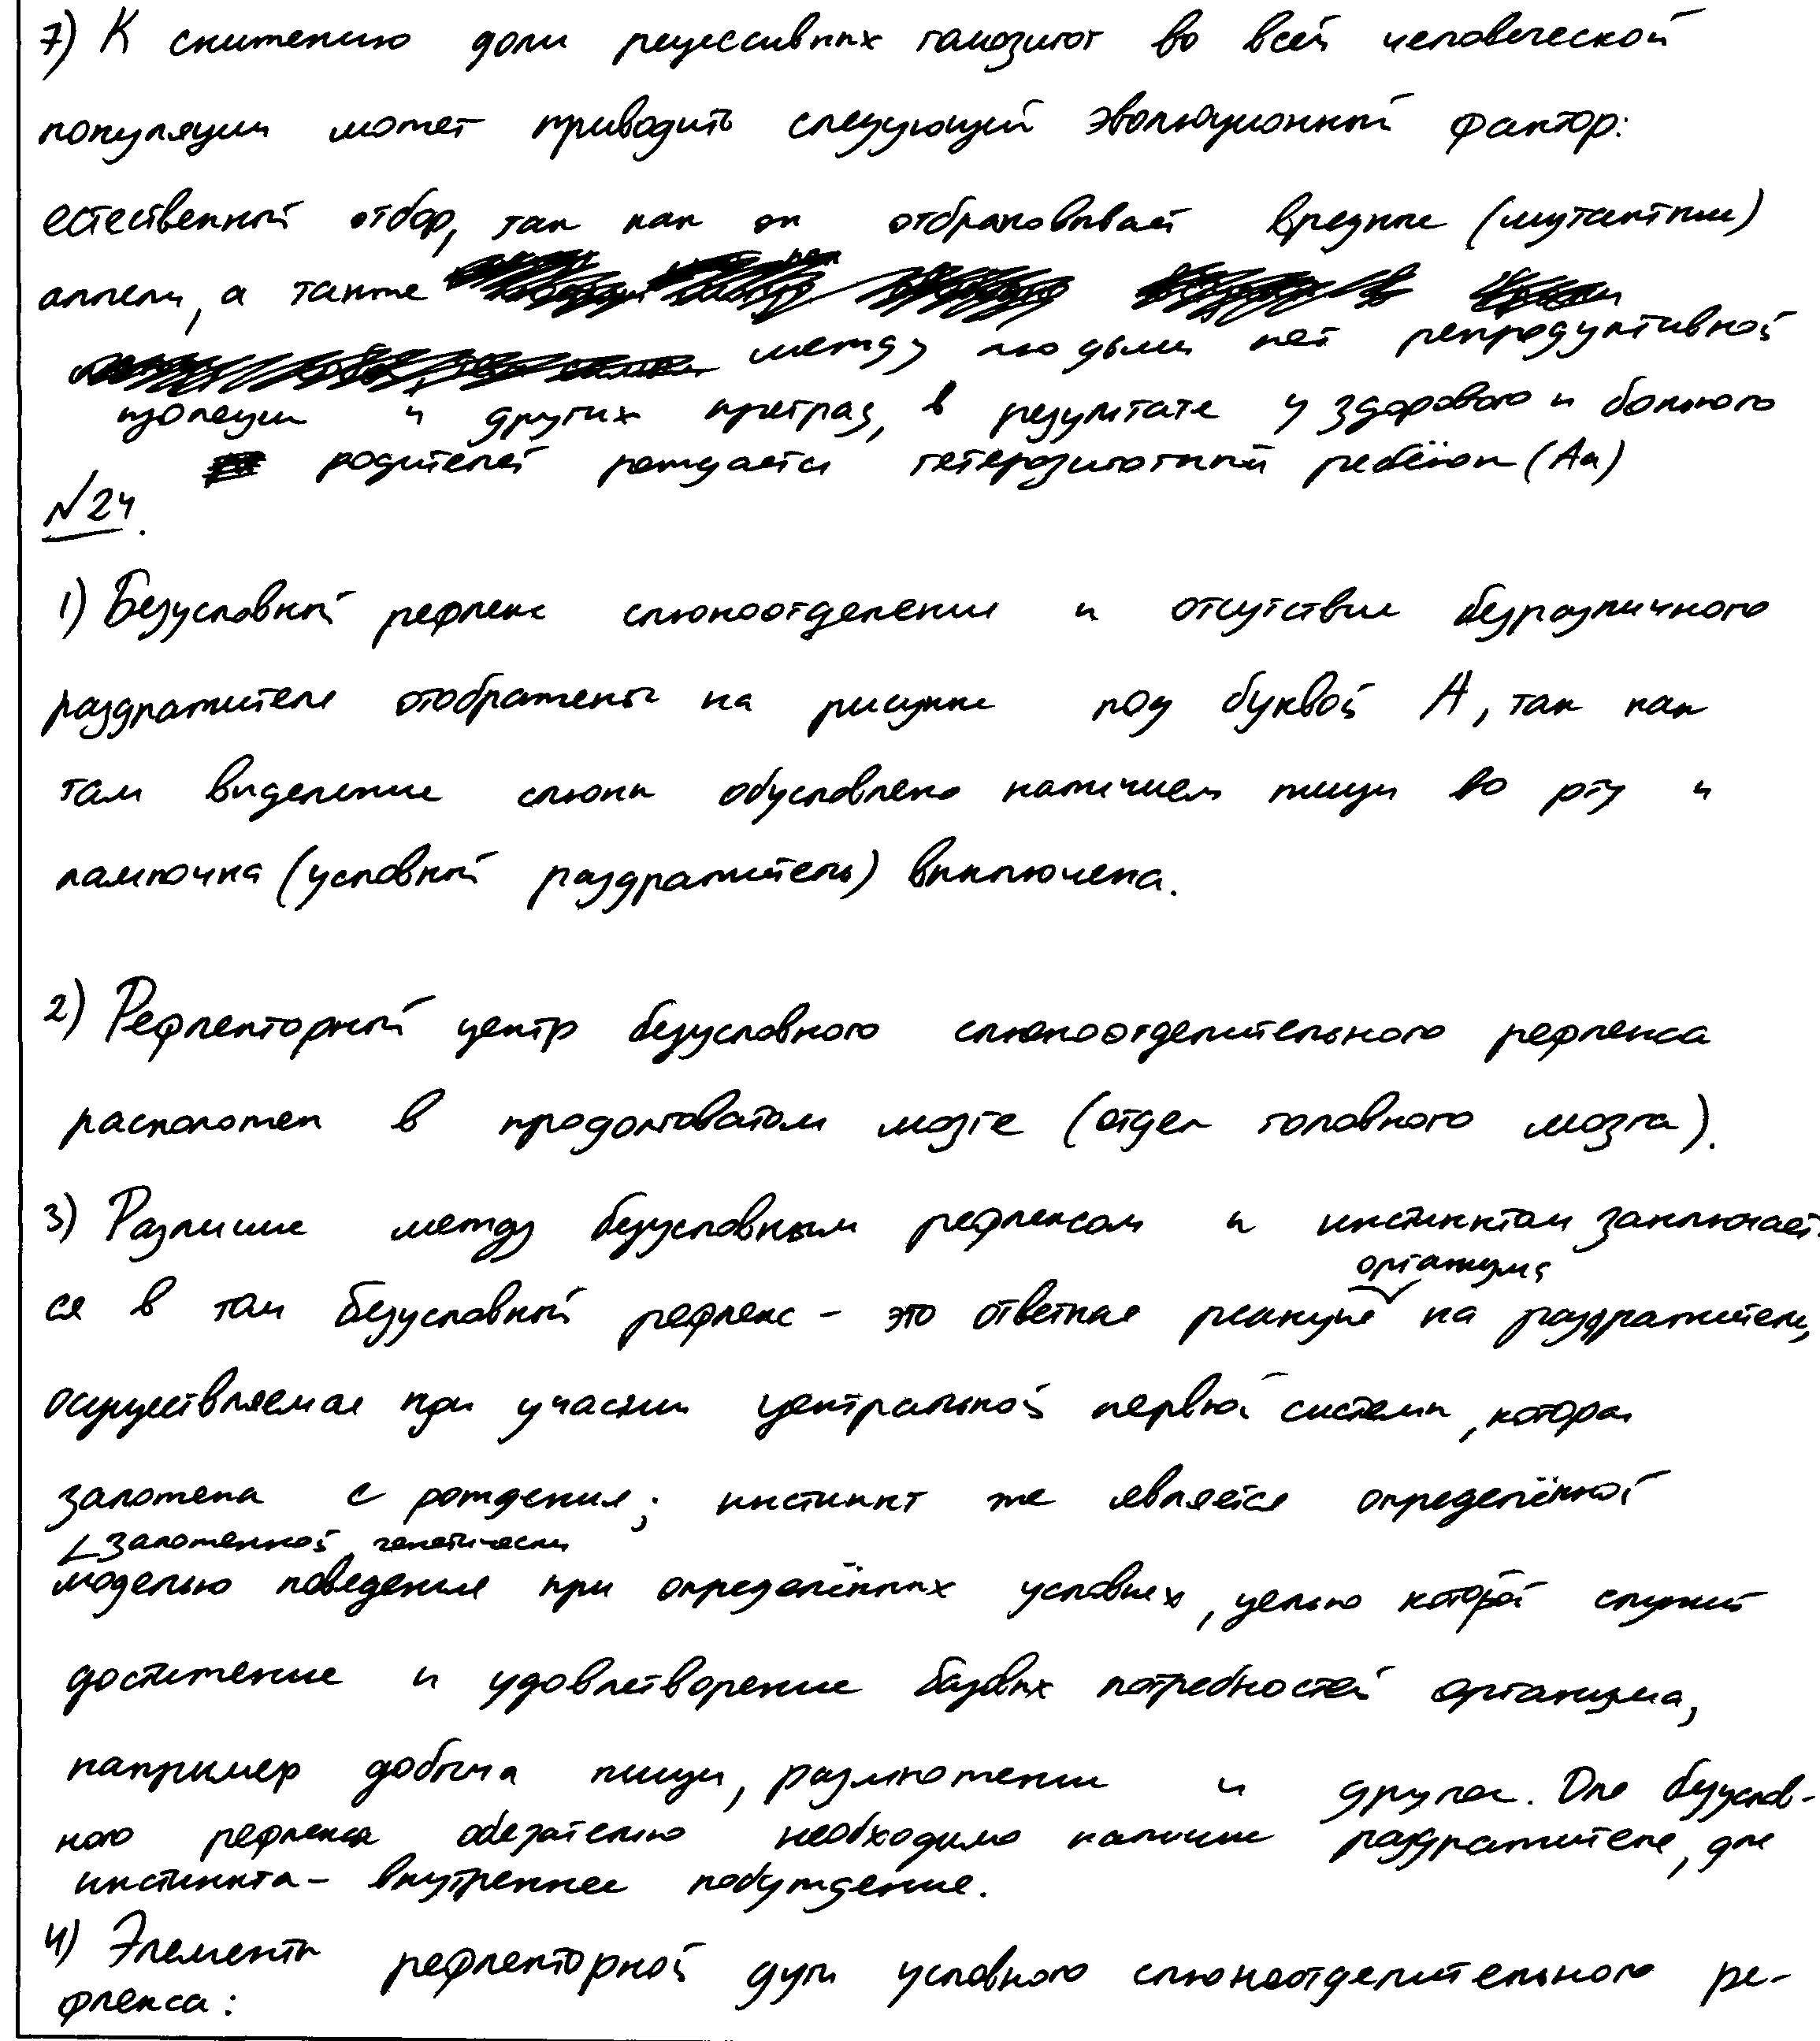 7) К снижению доли рецессивных гомозигот во всей человеческой
популяции может приводить следующий эволюционный фактор:
естественный отбор, так как он отбраковывает вредные (мутантные)
аллели, а также
между людьми нет репродуктивной
изоляции и других преград, в результате у здорового и больного
родителей рождается гетерозиготный ребёнок (Аа)
№24.
1) Безусловный рефлекс слюноотделения и отсутствие безразличного
раздражителя отображены на рисунке под буквой А, так как
там выделение слюны обусловлено наличием пищи во рту и
лампочка (условный раздражитель) выключена.
2) Рефлекторный центр безусловного слюноотделительного рефлекса
расположен в продолговатом мозге (отдел головного мозга).
3) Различие между безусловным рефлексом и инстинктом заключает-
организма
ся в том безусловный рефлекс - это ответная реакция на раздражители,
осуществляемая при участии центральной нервной системы, которая
заложена с рождения; инстинкт же является определённой
заложенной генетически
моделью поведения при определённых условиях, целью которой служит
достижение и удовлетворение базовых потребностей организма,
например добыча пищи, размножение и другое. Для безуслов-
ного рефлекса обязательно необходимо наличие раздражителя, для
инстинкта - внутреннее побуждение.
4) Элементы рефлекторной дуги условного слюноотделительного ре-
флекса: